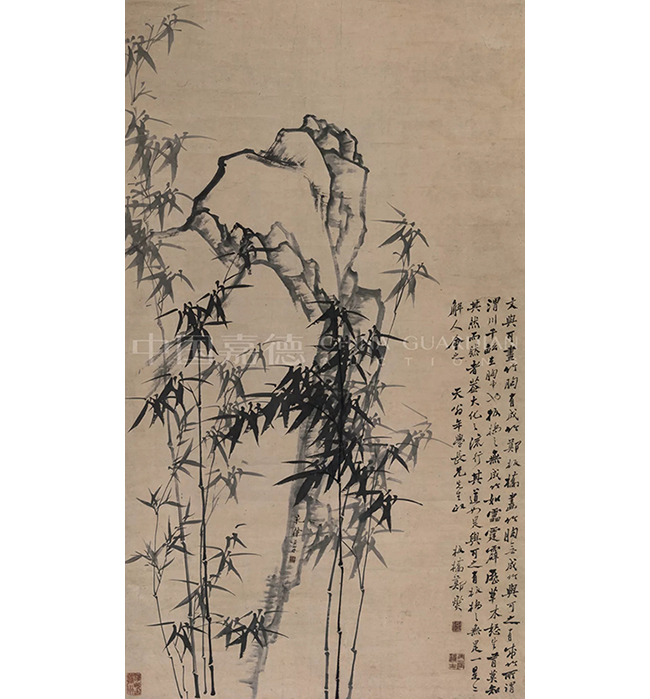 文與可畫竹胸有成竹鄭板橋畫竹胸無成竹與可之有成竹所謂
渭川千畝在胸中也板橋之無成竹如雷霆霹靂草木怒生有莫知
其然而然者蓋大化之流行其道如是與可之有板橋之無是一是二
解人會之 天翁年學長兄先生正 板橋鄭燮
中国嘉德 GUARDIAN